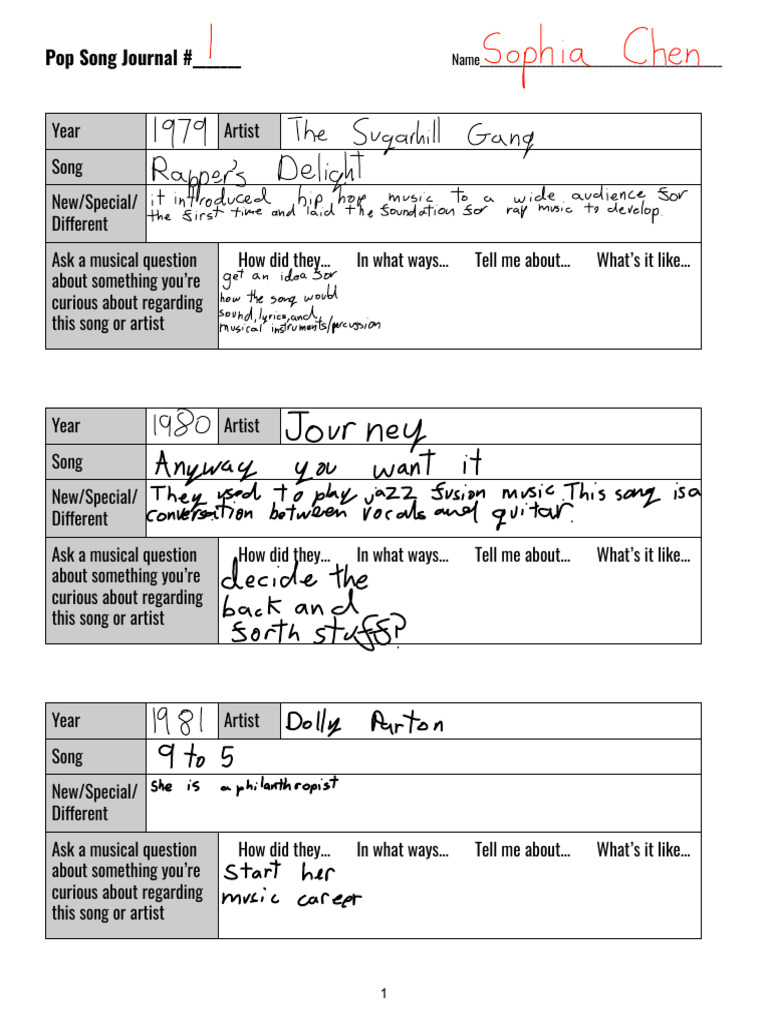 Pop Song Journal #_____ 1
Name Sophia Chen
Year 1979 Artist The Sugarhill Gang
Song Rapper's Delight
New/Special/ it introduced hip hop music to a wide audience for
Different the first time and laid the foundation for rap music to develop.
Ask a musical question How did they... In what ways... Tell me about... What's it like...
about something you're get an idea for
curious about regarding how the song would
this song or artist sound, lyrics, and
musical instruments/percussion
Year 1980 Artist Journey
Song Anyway you want it
New/Special/ They used to play jazz fusion music. This song is a
Different conversation between vocals and guitar.
Ask a musical question How did they... In what ways... Tell me about... What's it like...
about something you're decide the
curious about regarding back and
this song or artist forth stuff?
Year 1981 Artist Dolly Parton
Song 9 to 5
New/Special/ She is a philanthropist
Different
Ask a musical question How did they... In what ways... Tell me about... What's it like...
about something you're start her
curious about regarding music career
this song or artist
1